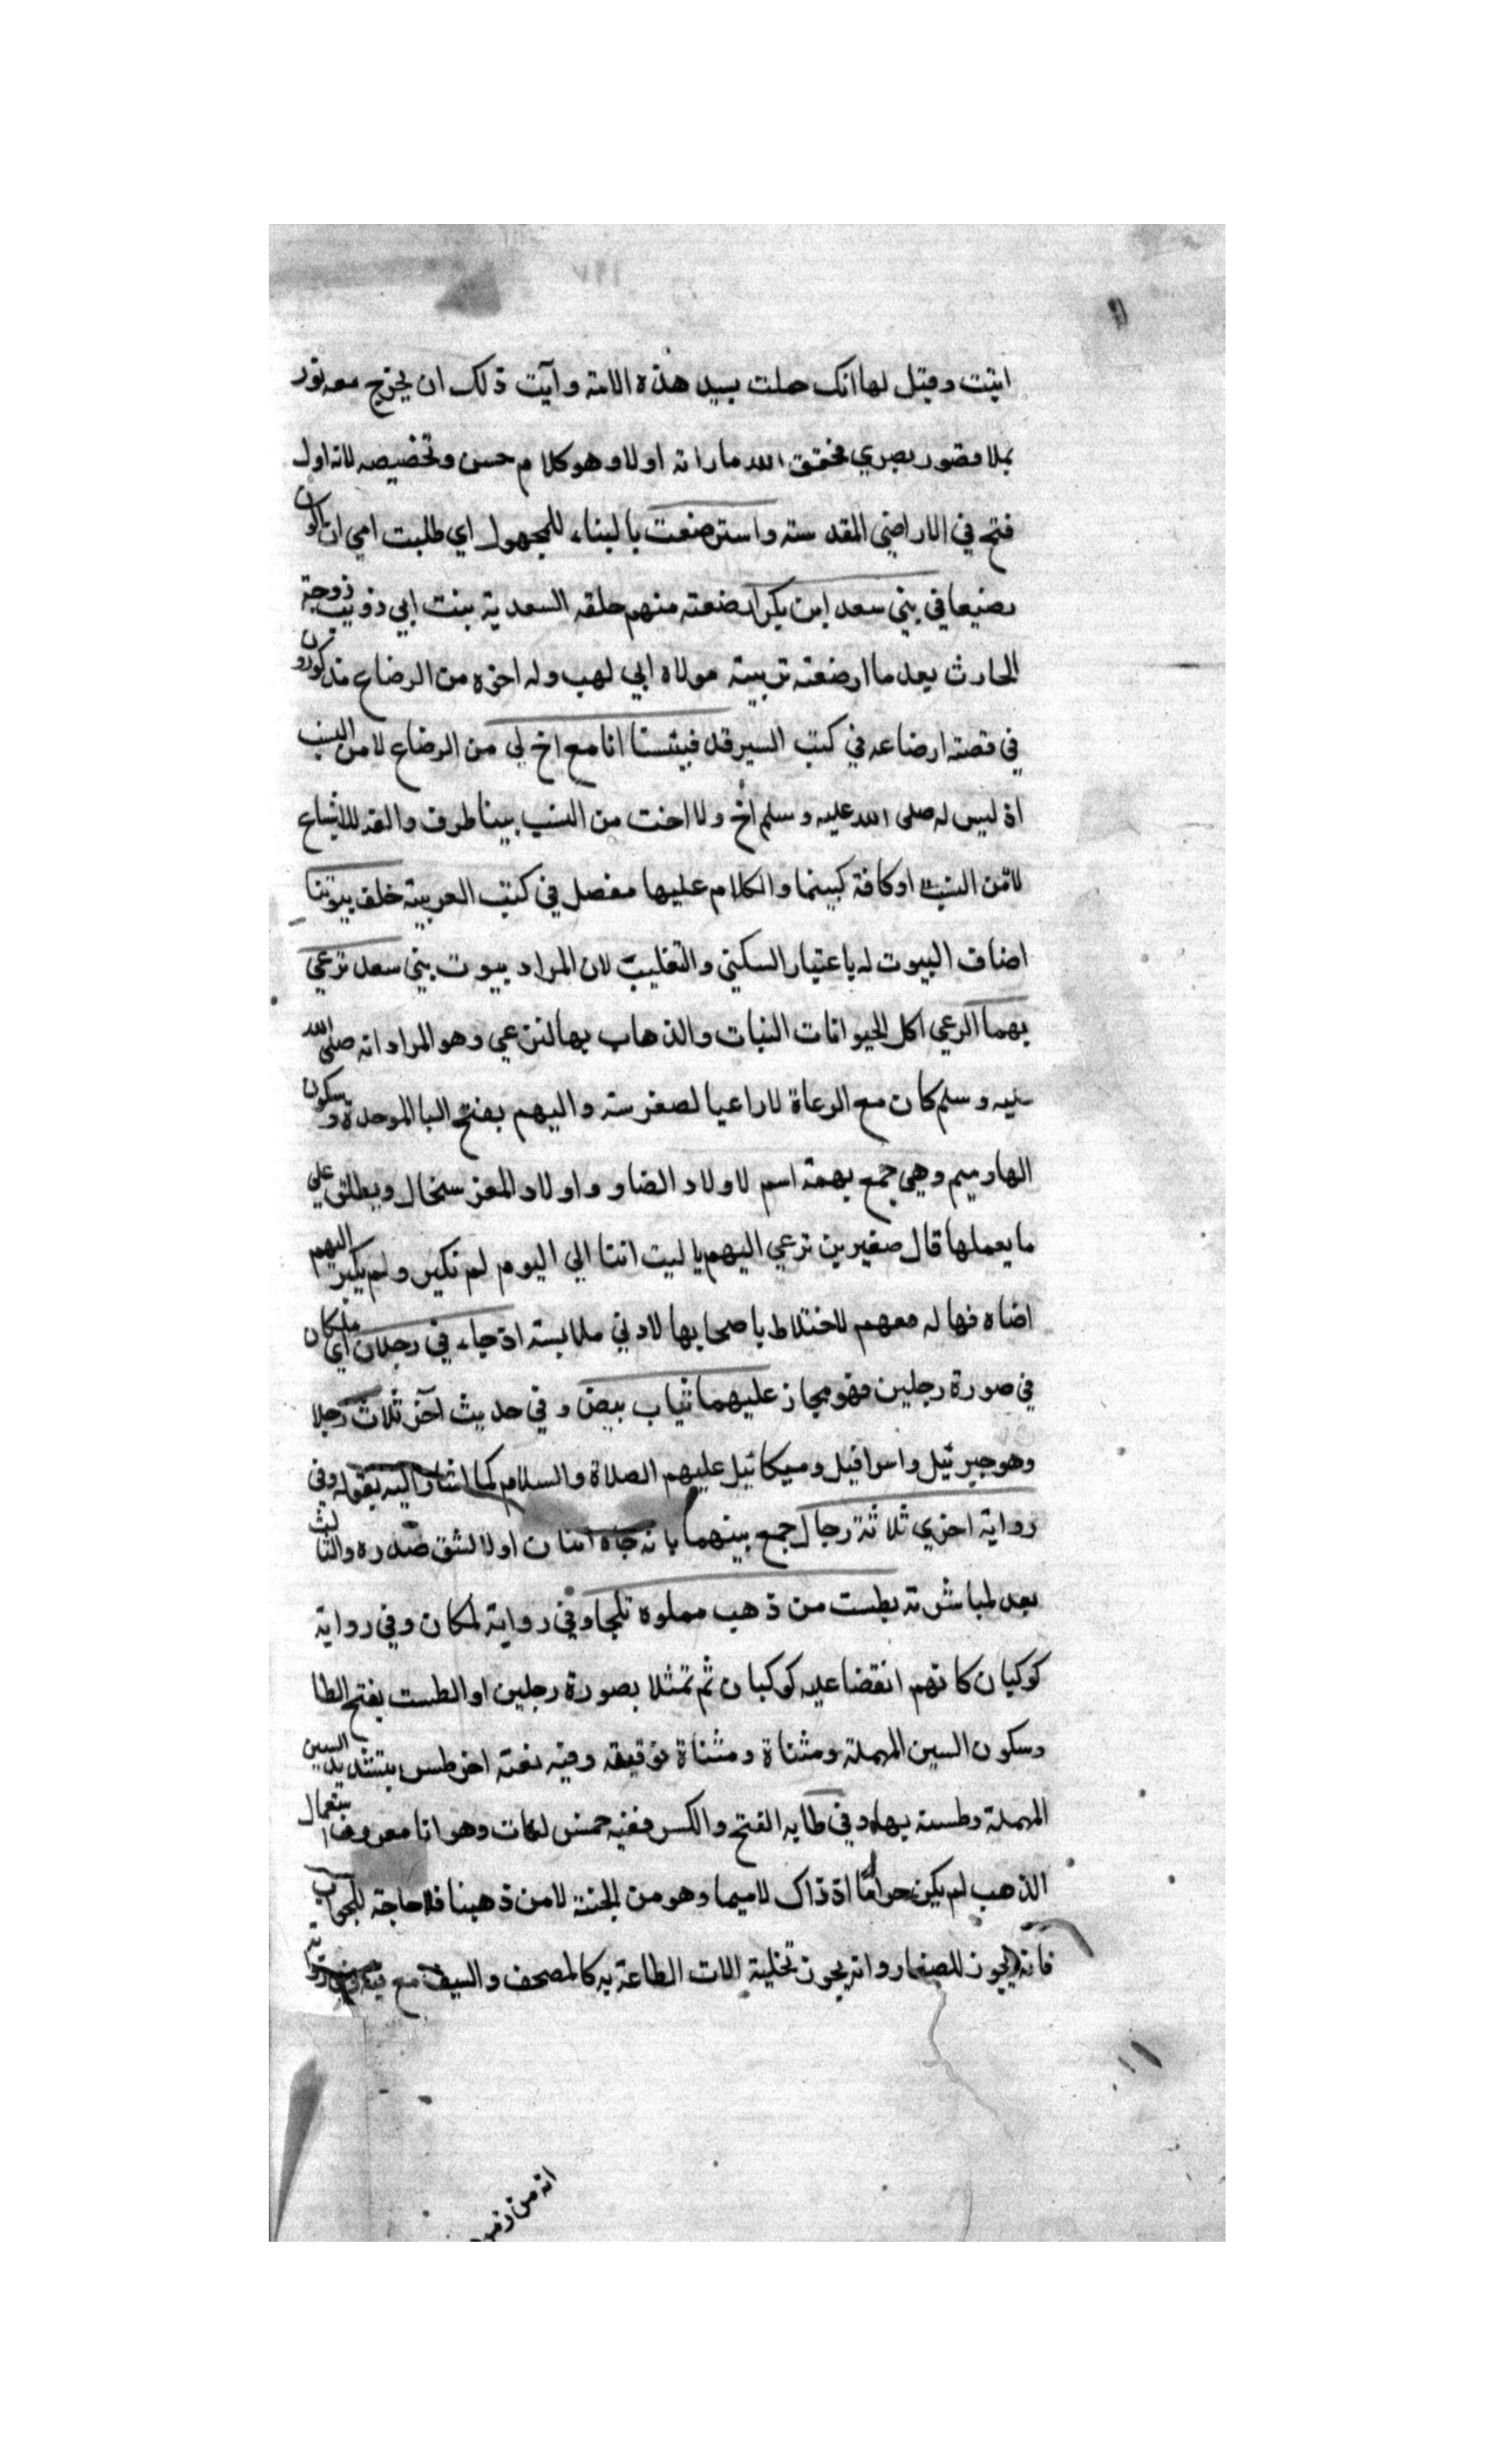 اتيت وقيل لها انك حملت بسيد هذه الامة وآيت ذلك ان يخرج معه نور
يملا قصور بصري فحقق الله ما راته اولا وهو كلام حسن وتخصيصه لانه اول
فتح في الاراضي المقدسته واسترضعت بالبناء للمجهول اي طلبت امي ان اكون
رضيعا في بني سعد ابن بكر ارضعته منهم حلقه السعدية بنت ابي ذويب زوجة
الحارث بعد ما ارضعته ثويبته مولاه ابي لهب وله اخوه من الرضاع مذكورون
في قصته ارضاعه في كتب السير قد فبيننا انا مع اخ لي من الرضاع لا من النسب
اذ ليس له صلى الله عليه وسلم اخ ولا اخت من النسب بينا طرف والفه للاشباع
لا من النسب اوكافة كبينما والكلام عليها مفصل في كتب العربية خلف بيوتنا
اضاف البيوت له باعتبار السكني والتغليب لان المراد بيوت بني سعد نرعي
بهما الرعي اكل الحيوانات النبات والذهاب بها لترعي وهو المراد انه صلى الله
عليه وسلم كان مع الرعاة لا راعيا لصغر سنه والبهم بفتح البا الموحدة وسكون
الها وميم وهي جمع بهمة اسم لاولاد الضاو واولاد المعز سخال ويطلق على
ما يعملها قال صغيرين نرعي البهم يا ليت اننا الي اليوم لم نكبر ولم يكبر البهم
اضاه فها له معهم للاختلاط باصحابها لادني ملابسته اذ جاء في رجلان اي ملكان
في صورة رجلين فهو مجاز عليهما ثياب بيض وفي حديث آخر ثلاث رجلا
وهو جبرئيل واسرافيل وميكائيل عليهم الصلاة والسلام كما اشار اليه بقوله وفي
رواية اخري ثلاثة رجال جمع بينهما بانه جاه اثنان اولا لشق صدره والثالث
بعد لمباشرته بطست من ذهب مملوه ثلجا وفي رواية لمكان وفي رواية
كوكبان كانهم انقضا عليه كوكبان ثم تمثلا بصورة رجلين او الطست بفتح الطا
وسكون السين المهملة ومثناة ومثناة فوقيقه وفيه لغته اخر طس بتشديد السين
المهملة وطسته بها وفي طايه الفتح والكسر ففيه خمس لغات وهو انا معروف
الذهب لم يكن حراما اذ ذاك لاسيما وهو من الجنة لا من ذهبنا فلا حاجة للجواب
فانه يجوز للصغار وانه يجوز تحلية الات الطاعة به كالمصحف والسيف مع
انه من زمر